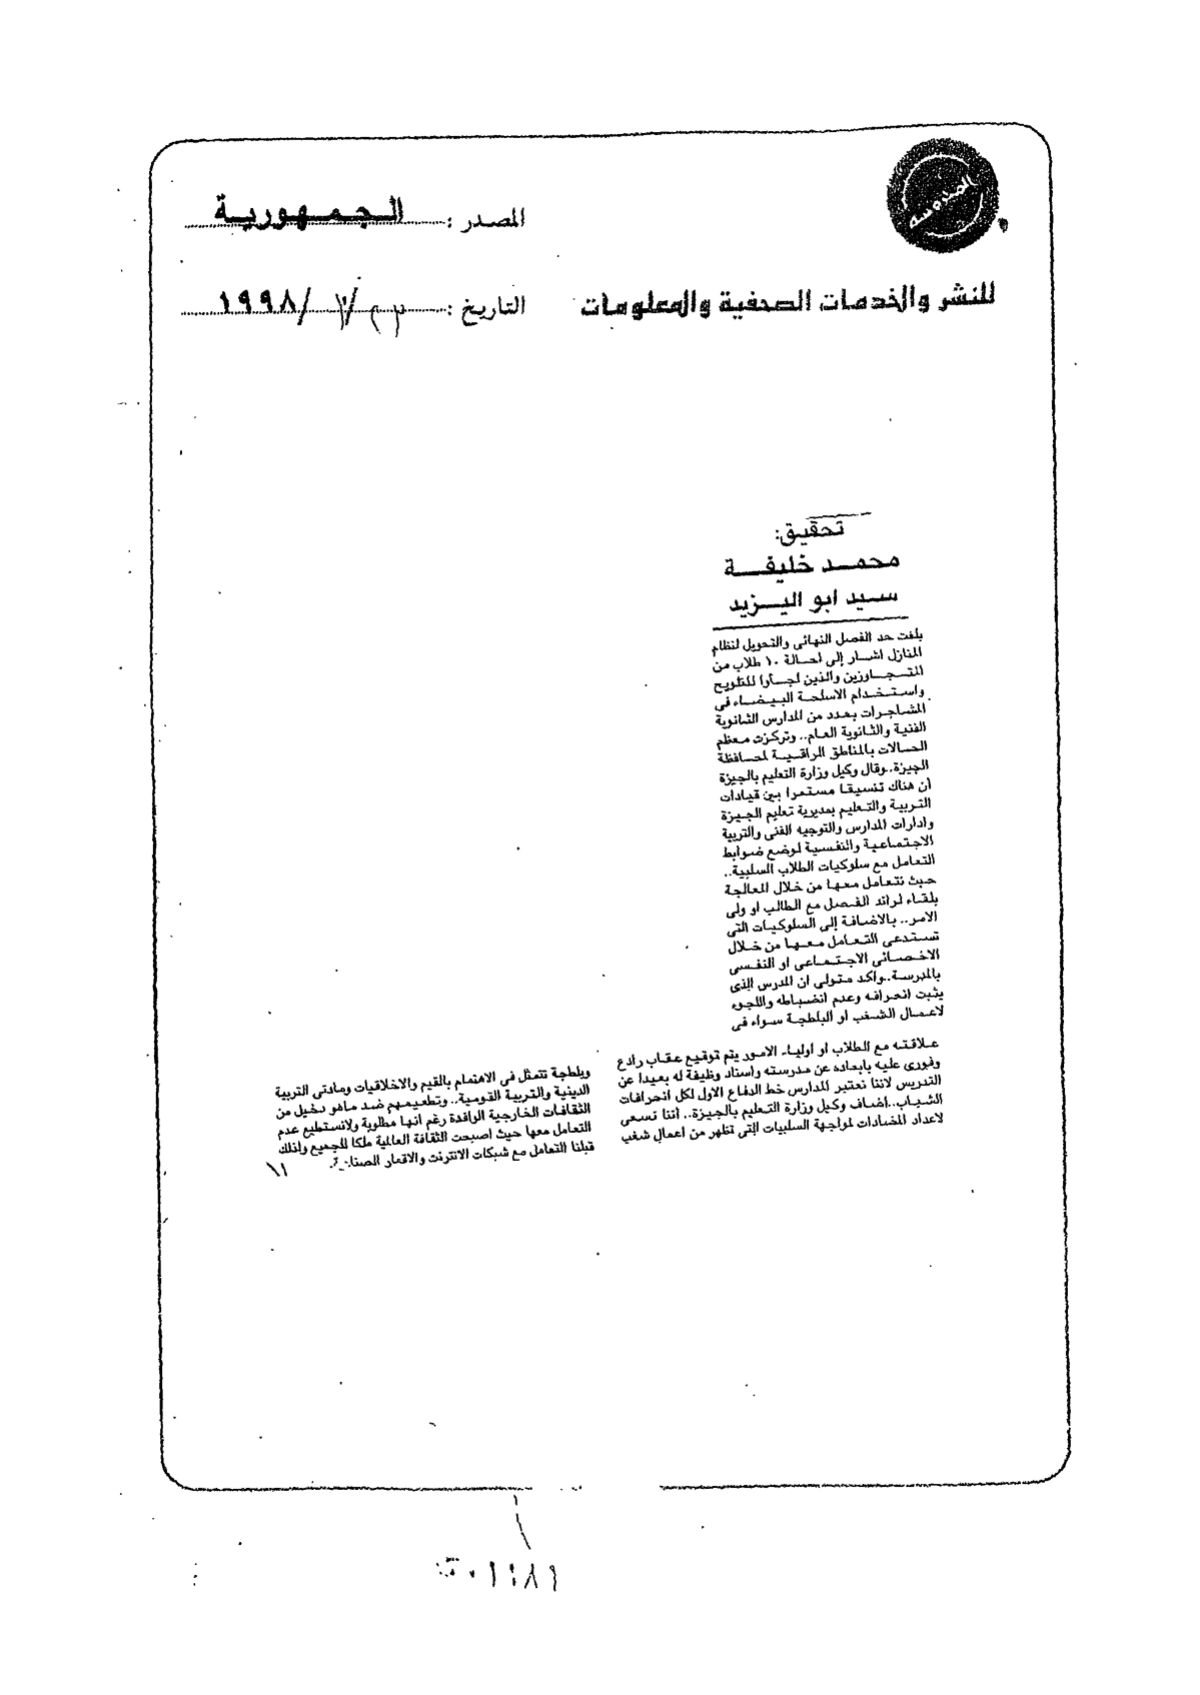 المصدر : الجمهورية
للنشر والخدمات الصحفية والمعلومات
التاريخ : / ١٩٩٨
تحقيق:
محمد خليفة
سيد ابو اليزيد
بلغت حد الفصل النهائى والتحويل لنظام
المنازل اشار إلى احالة ١٠ طلاب من
المتجاوزين والذين لجأوا للتلويح
واستخدام الاسلحة البيضاء فى
المشاجرات بعدد من المدارس الثانوية
الفنية والثانوية العام.. وتركزت معظم
الحالات بالمناطق الراقية لمحافظة
الجيزة..وقال وكيل وزارة التعليم بالجيزة
أن هناك تنسيقا مستمرا بين قيادات
التربية والتعليم بمديرية تعليم الجيزة
وادارات المدارس والتوجيه الفنى والتربية
الاجتماعية والنفسية لوضع ضوابط
التعامل مع سلوكيات الطلاب السلبية..
حيث نتعامل معها من خلال المعالجة
بلقاء لرائد الفصل مع الطالب او ولى
الامر.. بالاضافة إلى السلوكيات التى
تستدعى التعامل معها من خلال
الاخصائى الاجتماعى او النفسى
بالمدرسة..واكد متولى ان المدرس الذى
يثبت انحرافه وعدم انضباطه واللجوء
لاعمال الشغب او البلطجة سواء فى
علاقته مع الطلاب او أولياء الامور يتم توقيع عقاب رادع
وفورى عليه بابعاده عن مدرسته واسناد وظيفة له بعيدا عن
التدريس لاننا نعتبر المدارس خط الدفاع الاول لكل انحرافات
الشباب..اضاف وكيل وزارة التعليم بالجيزة.. أننا نسعى
لاعداد المضادات لمواجهة السلبيات التى تظهر من اعمال شغب
وبلطجة تتمثل فى الاهتمام بالقيم والاخلاقيات ومادتى التربية
الدينية والتربية القومية.. وتطعيمهم ضد ماهو دخيل من
الثقافات الخارجية الوافدة رغم انها مطلوبة ولانستطيع عدم
التعامل معها حيث اصبحت الثقافة العالمية ملكا للجميع ولذلك
قبلنا التعامل مع شبكات الانترنت والاقمار